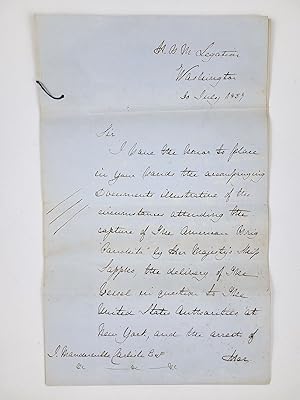 H. B. M. Legation
Washington
30 July 1859
Sir
I have the honor to place
in your hands the accompanying
documents illustrative of the
circumstances attending the
capture of the American Brig
by Her Majesty's Ship
the delivery of the
Vessel in question to the
United States Authorities at
New York, and the arrest of
Her
J. Mandeville Carlisle Esqre
&c &c &c